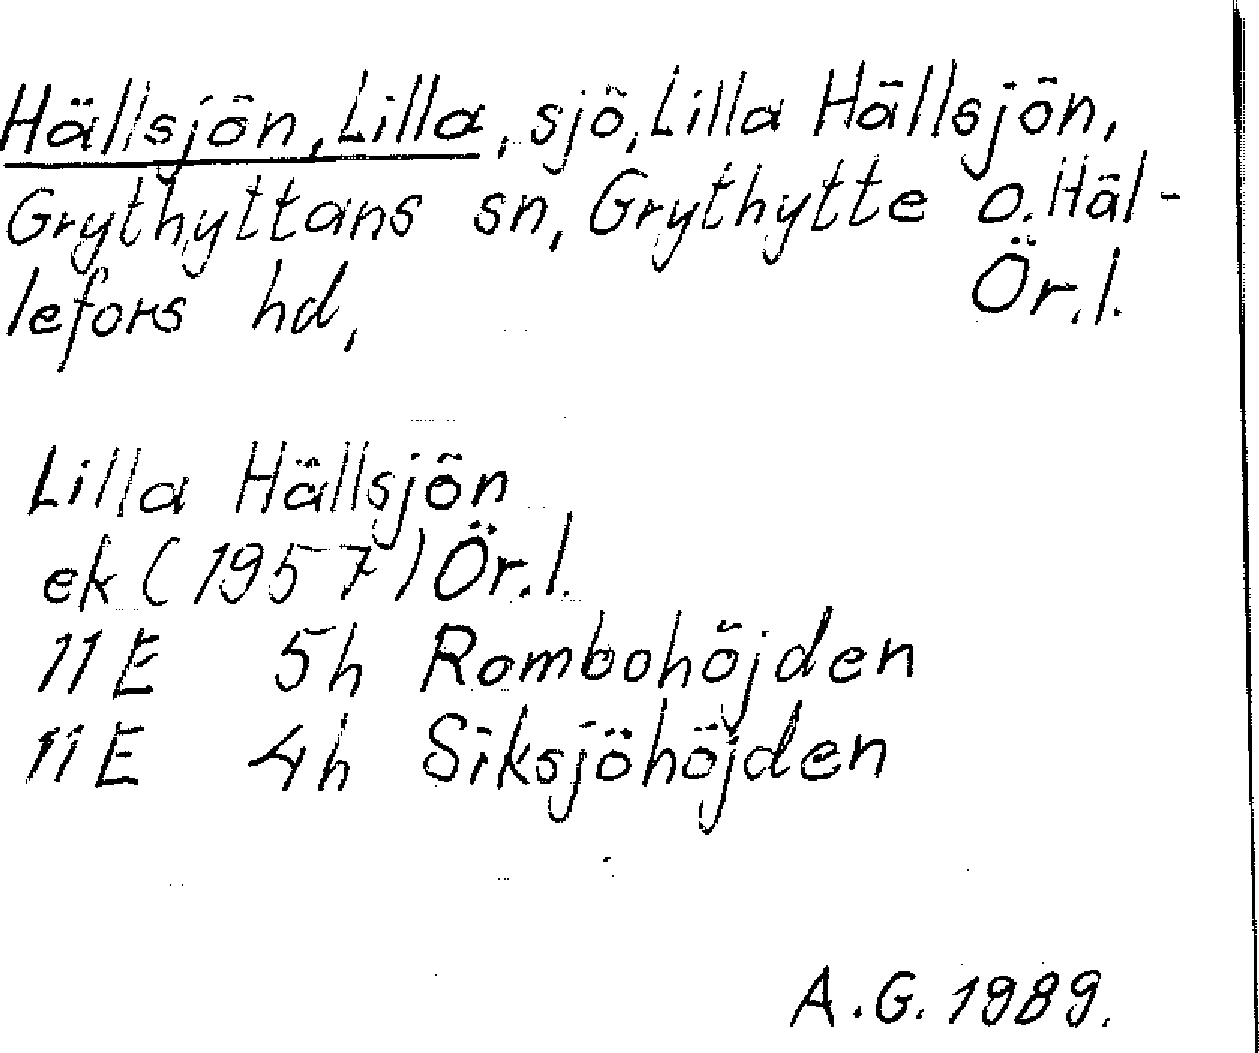 Hällsjön, Lilla, sjö, Lilla Hällsjön,
Grythyttans sn, Grythytte o. Häl-
lefors hd, Ör. l.
Lilla Hällsjön
ek (1957) Ör. l.
11E 5h Rombohöjden
11E 4h Siksjöhöjden
A.G. 1989.